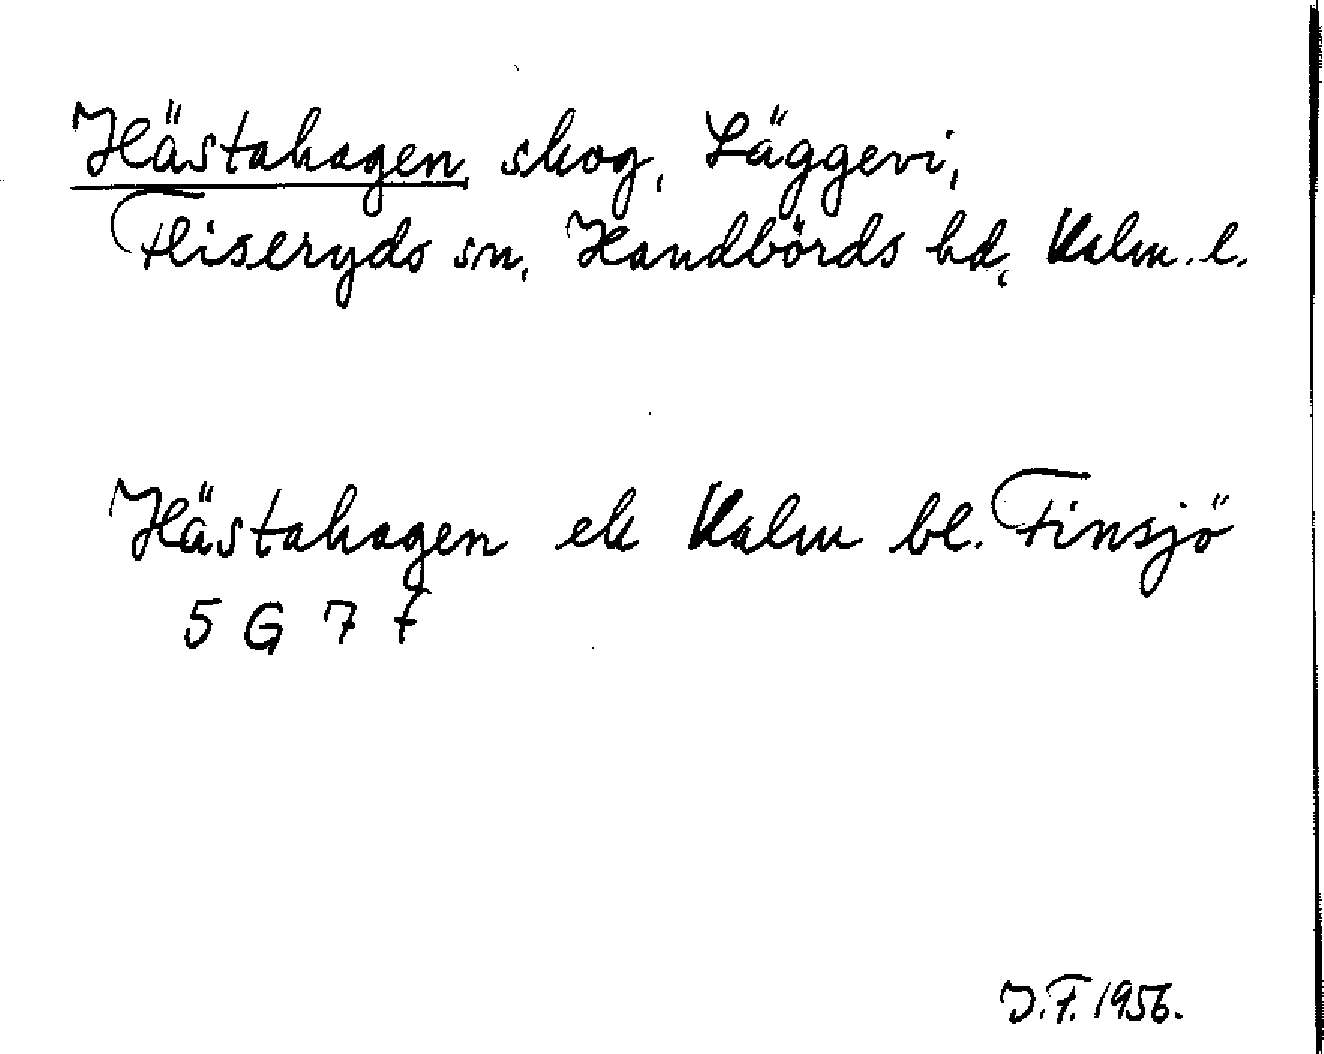 Hästahagen, skog, Läggevi,
Fliseryds sn, Handbörds hd, Kalm. l.
Hästahagen ek Kalm bl. Finsjö
5 G 7 f
J.F. 1956.